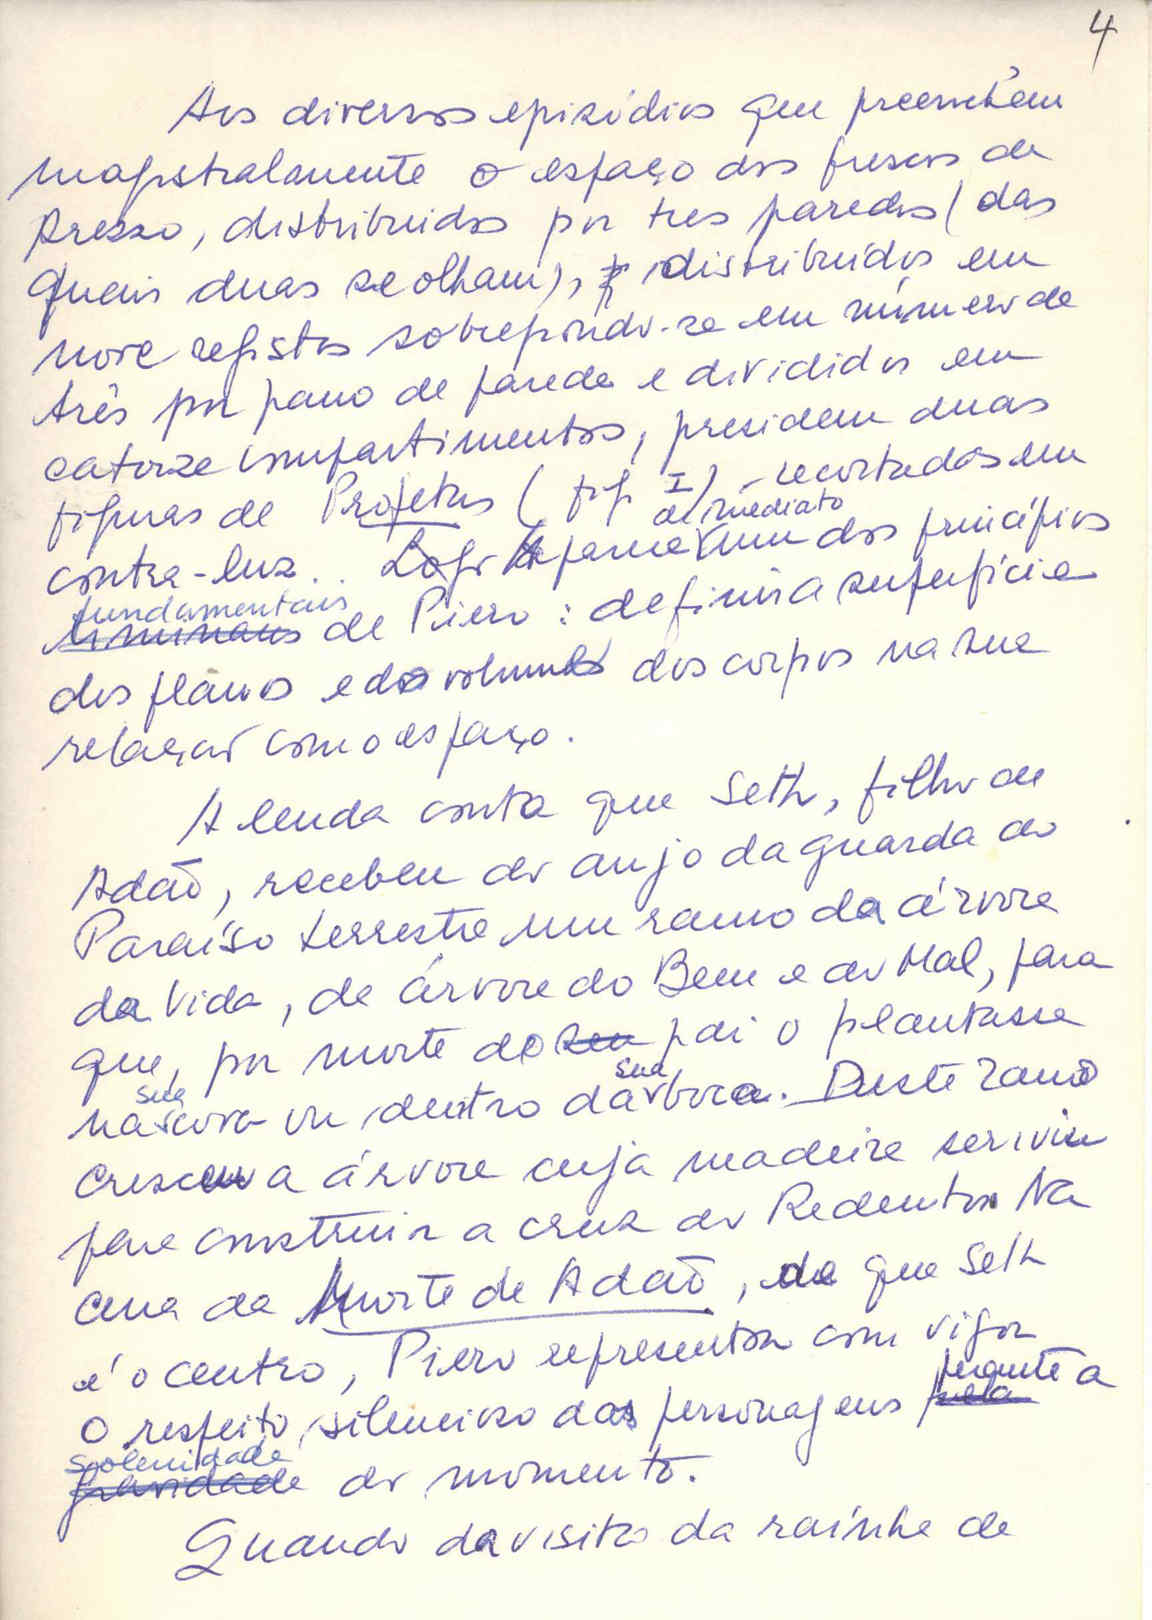 4
Aos diversos episódios que preenchem
magistralmente o espaço dos frescos de
Arezzo, distribuidos por tres paredes (das
quais duas se olham), distribuídos em
nove registos sobrepondo-se em número de
três por pano de parede e divididos em
catorze compartimentos, presidem duas
figuras de Profetas (fig I) recortadas em
de imediato
contra-luz.. Logo aparece um dos princípios
fundamentais
de Piero: definir a superfície
dos planos e dos volumes dos corpos na sua
relação com o espaço.
A lenda conta que Seth, filho de
Adão, recebeu do anjo da guarda do
Paraíso terrestre um ramo da árvore
da Vida, da árvore do Bem e do Mal, para
que, por morte do seu pai o plantasse
sua sua
na cova ou dentro da boca. Deste ramo
cresceu a árvore cuja madeira serviu
para construir a cruz do Redentor. Na
cena da Morte de Adão, de que Seth
é o centro, Piero representou com vigor
perante a
o respeito silencioso das personagens pela
solenidade
gravidade do momento.
Quando da visita da rainha de